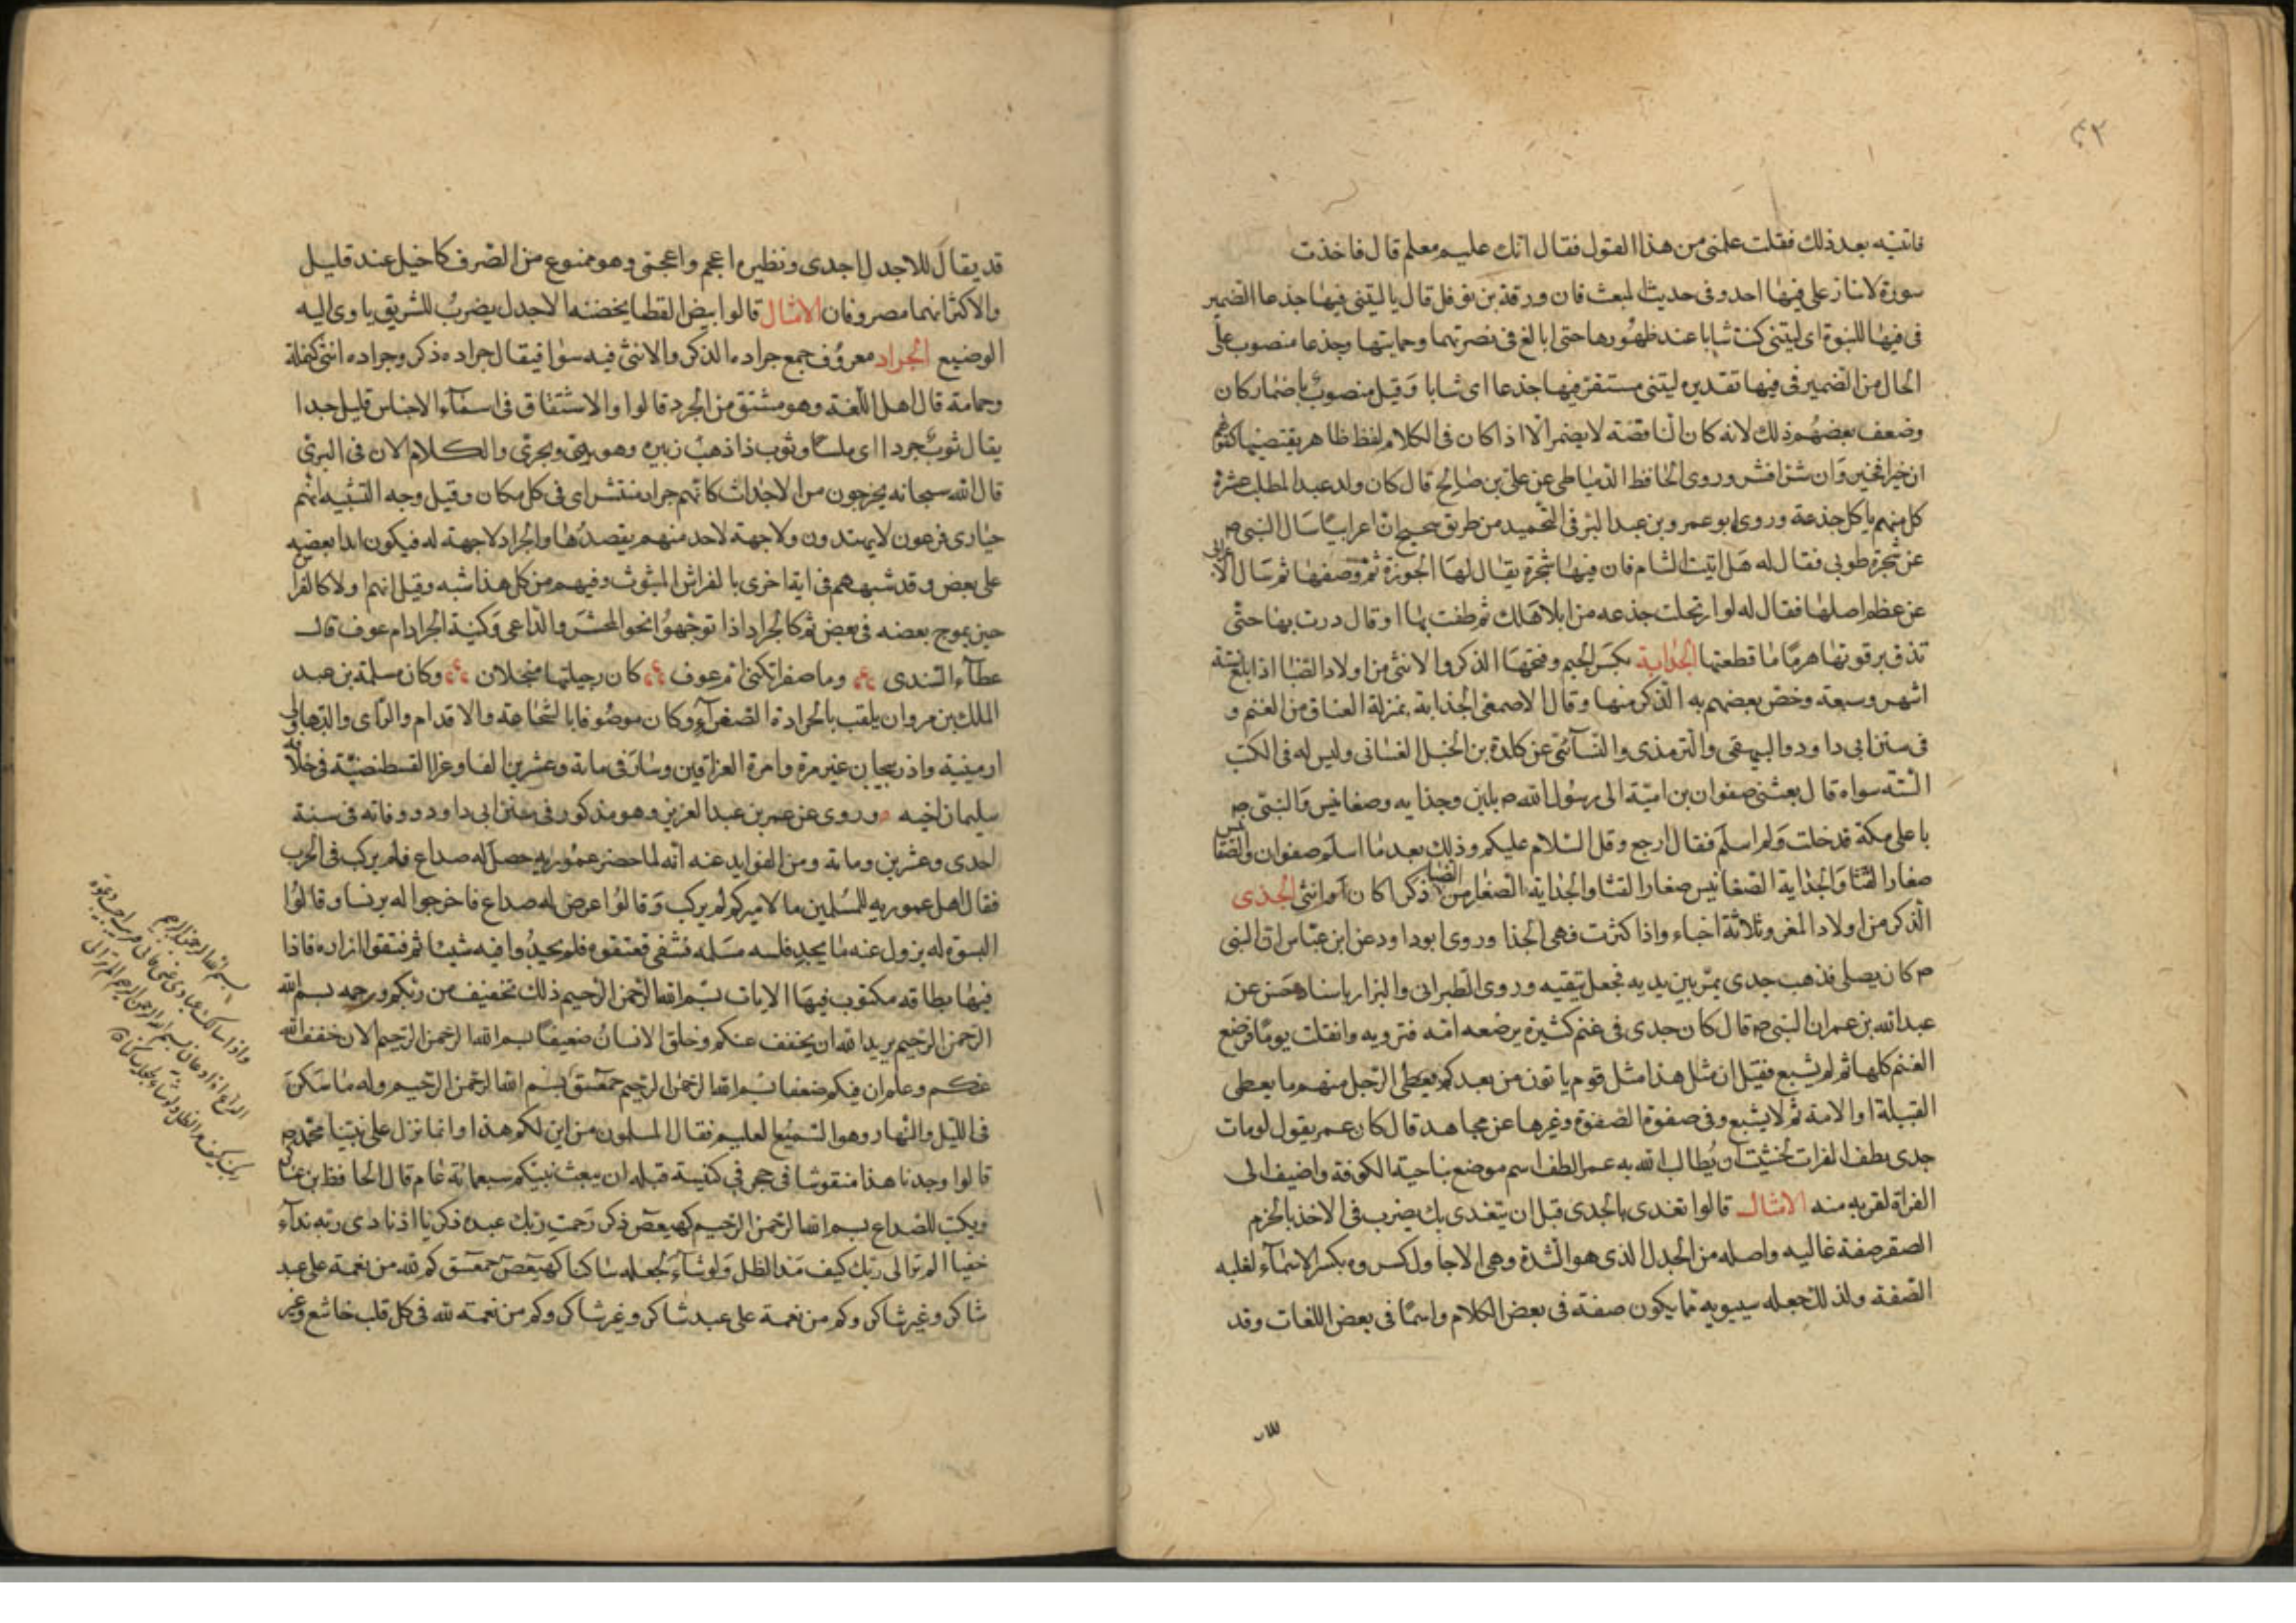 ٤٣
فاتيته بعد ذلك فقلت علمنى من هذا القول فقال انك عليم معلم قال فاخذت
سورة لا ينازعنى فيها احد وفى حديث المبعث فان ورقة بن نوفل قال يا ليتنى فيها جذعا الضمير
فى فيها للنبوة اى ليتنى كنت شابا عند ظهورها حتى ابالغ فى نصرتها وحمايتها وجذعا منصوب على
الحال من الضمير فى فيها تقديره ليتنى مستقر فيها جذعا اى شابا وقيل منصوب باضمار كان
وضعف بعضهم ذلك لانه كان الناقصة لا يضمر الا اذا كان فى الكلام لفظ ظاهر يقتضيها كقولهم
ان خيرا فخير وان شرا فشر وروى الحافظ الدمياطى عن على بن صالح قال كان ولد عبد المطلب عشرة
كل منهم ياكل جذعة وروى ابو عمرو بن عبد البر فى التمهيد من طريق صحيح ان اعرابيا سال النبى ص
عن شجرة طوبى فقال له هل اتيت الشام فان فيها شجرة يقال لها الجوزة ثم وصفها ثم سال الاعرابى
عن عظم اصلها فقال له لو ارتحلت جذعه من ابل اهلك ثم طفت بها او قال درت بها حتى
تندق ترقوتها هرما ما قطعتها الجداية بكسر الجيم وفتحها الذكر والانثى من اولاد الظبا اذا بلغ ستة
اشهر وسبعة وخص بعضهم به الذكر منها وقال الاصمعى الجداية بمنزلة العناق من الغنم و
فى سنن ابى داود والبيهقى والترمذى والنسآئى عن كلدة بن الحنبل الغسانى وليس له فى الكتب
الستة سواه قال بعثنى صفوان بن امية الى رسول الله ص بلبن وجدايه وضغابيس والنبى ص
باعلى مكة فدخلت ولم اسلم فقال ارجع وقل السلام عليكم وذلك بعد ما اسلم صفوان والضغابيس
صغار القثا والجداية الضغابيس صغار القثا والجداية الصغار من الظبا ذكرا كان او انثى الجدى
الذكر من اولاد المعز وثلاثة اجداء واذا كثرت فهى الجدا وروى ابو داود عن ابن عباس ان النبى
ص كان يصلى فذهب جدى يمر بين يديه فجعل يتقيه وروى الطبرانى والبزار باسناد حسن عن
عبد الله بن عمر ان النبى ص قال كان جدى فى غنم كثيرة يرضعه امه فترويه وانفلت يوما فرضع
الغنم كلها ثم لم يشبع فقيل ان مثل هذا مثل قوم ياتون من بعدكم يعطى الرجل منهم ما يعطى
القبيلة او الامة ثم لا يشبع وفى صفوة الصفوة وغيرها عن مجاهد قال كان عمر يقول لو مات
جدى بطف الفرات لخشيت ان يطالب الله به عمر الطف اسم موضع بناحية الكوفة واضيف الى
الفراة لقربه منه الامثال قالوا تغدى بالجدى قبل ان يتغدى بك يضرب فى الاخذ بالحزم
الصقر صفة غاليه واصله من الجدل الذى هو الشدة وهى الاجاول كسروه بكسر الاسمآء لغلبه
الصفة ولذلك جعله سيبويه مما يكون صفة فى بعض الكلام واسما فى بعض اللغات وقد
قد يقال للاجدل اجدى ونظيره اعجم واعجمى وهو ممنوع من الصرف كاخيل عند قليل
والاكثر انهما مصروفان الامثال قالوا بيض القطا يحضنه الاجدل يضرب للشريق ياوى اليه
الوضيع الجراد معروف جمع جراده الذكر والانثى فيه سوا فيقال جراده ذكر وجراده انثى كنملة
وحمامة قال اهل اللغة وهو مشتق من الجرد قالوا والاشتقاق فى اسمآء الاجناس قليل جدا
يقال ثوب جرد اى ملسا وثوب ذا ذهب زبيره وهو برى وبحرى والكلام الان فى البرى
قال الله سبحانه يخرجون من الاجداث كانهم جراد منتشر اى فى كل مكان وقيل وجه التشبيه انهم
حيارى فزعون لا يهتدون ولا جهة لاحد منهم يقصدها والجراد لا جهة له فيكون ابدا بعضه
على بعض وقد شبههم فى اية اخرى بالفراش المبثوث وفيهم من كل هذا شبه وقيل انهم اولا كالفراش
حين يموج بعضه فى بعض ثم كالجراد اذا توجهوا نحو المحشر والداعى وكنية الجراد ام عوف قال
عطآء السندى وما صفرا تكنى ام عوف كان رجيلتيها منجلان وكان مسلمة بن عبد
الملك بن مروان يلقب بالجرادة الصفرآء وكان موصوفا بالشجاعة والاقدام والراى والدها ولى
ارمينية واذربيجان غير مرة وامرة العراقين وسار فى مائة وعشرين الفا وغزا القسطنطينية فى خلافة
سليمان اخيه وروى عن عمر بن عبد العزيز وهو مذكور فى سنن ابى داود ووفاته فى سنة
احدى وعشرين ومائة ومن الفوايد عنه انه لما حضر عموريه حصل له صداع فلم يركب فى الحرب
فقال اهل عموريه للمسلمين ما لاميركم لم يركب وقالوا عرض له صداع فاخرجوا له برنسا وقالوا
البسوه له يزول عنه ما يجد فلبسه مسلمه فشفى ففتقوه فلم يجدوا فيه شيئا ثم فتقوا ازراره فاذا
فيها بطاقه مكتوب فيها الايات بسم الله الرحمن الرحيم ذلك تخفيف من ربكم ورحمه بسم الله
الرحمن الرحيم يريد الله ان يخفف عنكم وخلق الانسان ضعيفا بسم الله الرحمن الرحيم الان خفف الله
عنكم وعلم ان فيكم ضعفا بسم الله الرحمن الرحيم حمعسق بسم الله الرحمن الرحيم وله ما سكن
فى الليل والنهار وهو السميع العليم فقال المسلمون من اين لكم هذا وانما نزل على نبينا محمد ص
قالوا وجدنا هذا منقوشا فى حجر فى كنيسة قبل ان يبعث نبيكم سبعمائة عام قال الحافظ بن عساكر
ويكتب للصداع بسم الله الرحمن الرحيم كهيعص ذكر رحمت ربك عبده زكريا اذ نادى ربه ندآء
خفيا الم تر الى ربك كيف مد الظل ولو شآء لجعله ساكنا كهيعص حمعسق كم لله من نعمة على عبد
شاكر وغير شاكر وكم من نعمة على عبد شاكر وغير شاكر وكم من نعمة لله فى كل قلب خاشع وغير
بسم الله الرحمن الرحيم
واذا سالك عبادى عنى فانى قريب اجيب دعوة
الداع اذا دعان بسم الله الرحمن الرحيم الم تر الى
ربك كيف مد الظل ولو شاء لجعله ساكنا